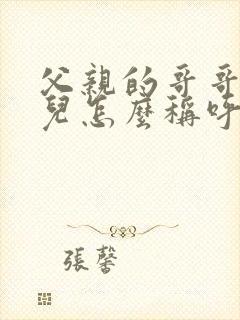 父親的哥哥
兒怎麼稱呼
張馨